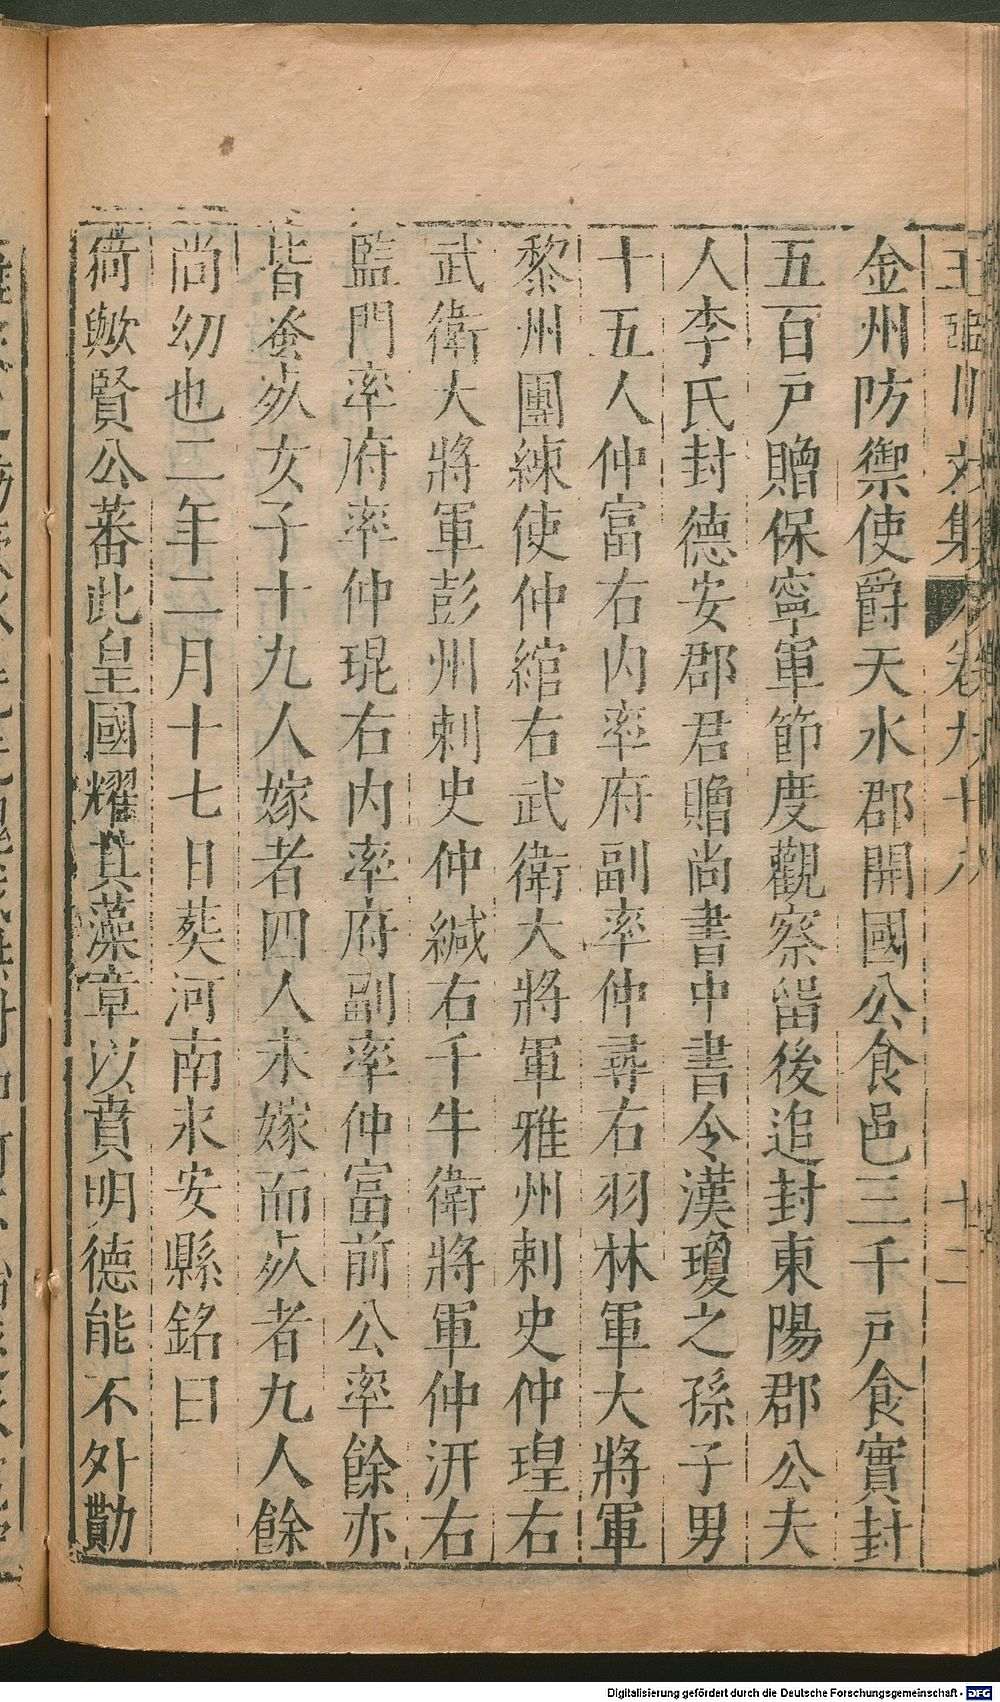 王臨川文集 卷九十八 十二
金州防禦使爵天水郡開國公食邑三千戸食實封
五百戸贈保寧軍節度觀察留後追封東陽郡公夫
人李氏封德安郡君贈尚書中書令漢瓊之孫子男
十五人仲富右内率府副率仲尋右羽林軍大將軍
黎州團練使仲綰右武衛大將軍雅州刺史仲瑝右
武衛大將軍彭州刺史仲緘右千牛衛將軍仲汧右
監門率府率仲琨右内率府副率仲富前公率餘亦
皆蚤歿女子十九人嫁者四人未嫁而歿者九人餘
尚幼也二年二月十七日葬河南永安縣銘曰
猗歟賢公蕃此皇國耀其藻章以賁明德能不外勩
Digitalisierung gefördert durch die Deutsche Forschungsgemeinschaft - DFG